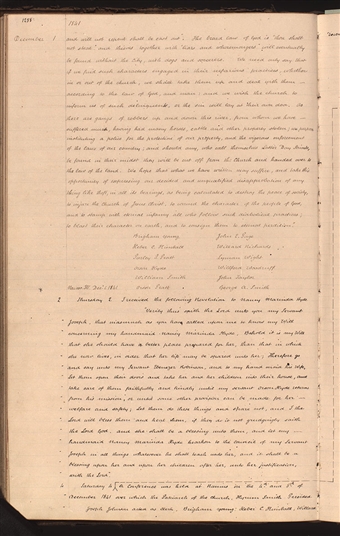 1258
1841
December 1 and will not repent shall be cast out". The Eternal law of God is "thou shalt
not steal" and thieves together with "liars and whoremongers" will eventually
be found without the City, with dogs and sorcerers. We would only say that
if we find such characters engaged in their nefarious practices, whether
in or out of the church, we shall take them up and deal with them
according to the law of God, and man; and we wish the church to
inform us of such delinquents, let the sin will lay at their own door. As
there are gangs of robbers up and down this river, from whom we have
suffered much, having had many horses, cattle and other property stolen, we purpose
instituting a police for the protection of our property, and the vigorous enforcement
of the laws of our country; and should any, who call themselves Latter Day Saints
be found in their midst they will be cut off from the Church and handed over to
the law of the land. We hope that what we have written may suffice, and take this
opportunity of expressing our decided and unqualified disapprobation of any
thing like theft, in all its bearings, as being calculated to destroy the peace of society,
to injure the Church of Jesus Christ, to wound the character of the people of God,
and to stamp with eternal infamy all who follow such diabolical practices,
to blast their character on earth, and to consign them to eternal perdition."
Brigham Young John E. Page
Heber C. Kimball Willard Richards
Parley P. Pratt Lyman Wight
Orson Hyde Wilford Woodruff
William Smith John Taylor
Nauvoo Ill. Dec. 1. 1841. Orson Pratt George A. Smith
2 Thursday 2. I received the following Revelation to Nancy Marinda Hyde
Verily thus saith the Lord unto you my Servant
Joseph, that inasmuch as you have called upon me to know my Will
concerning my handmaid Nancy Marinda Hyde. Behold it is my Will
that she should have a better place prepared for her, than that in which
she now lives, in order that her life may be spared unto her; Therefore go
and say unto my Servant Ebenezer Robinson, and to my hand maid his wife,
Let them open their doors and take her and her children into their house, and
take care of them faithfully and kindly until my servant Orson Hyde returns
from his mission, or until some other provision can be made for her
welfare and safety; Let them do these things and spare not, and I the
Lord will bless them and heal them, if they do it not grudgingly, saith
the Lord God. and she shall be a blessing unto them, and let my
handmaid Nancy Marinda Hyde hearken to the counsel of my servant
Joseph in all things whatsoever he shall teach unto her, and it shall be a
blessing upon her and upon her children after her, unto her justification,
saith the Lord."
4 Saturday 4 A Conference was held at Ramus on the 4th and 5th of
December 1841 over which the Patriarch of the Church, Hyrum Smith Presided
Joseph Johnson acted as clerk. Brigham Young Heber C. Kimball, Willard